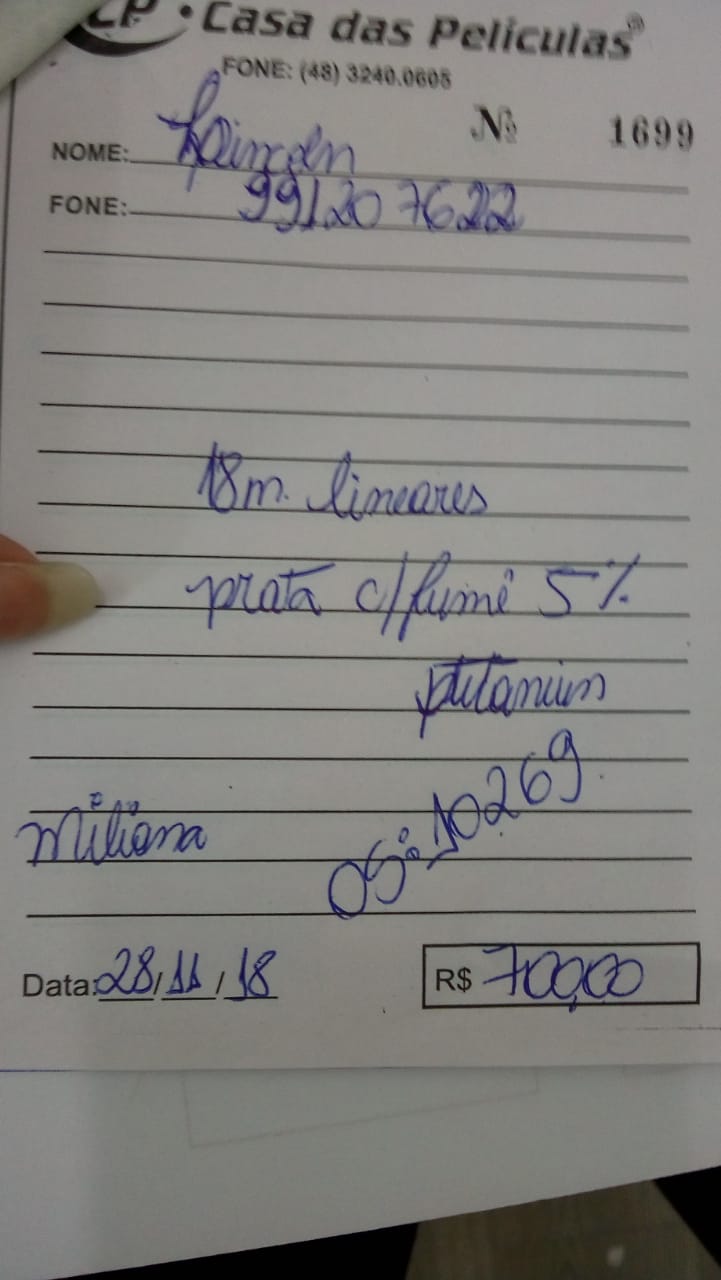 CP • Casa das Películas®
FONE: (48) 3240.0605
Nº 1699
NOME:
FONE: 991207622
18m. lineares
prata c/fumê 5%
titanium
Miliana
OS: 10269.
Data: 28/11/18
R$ 700,00